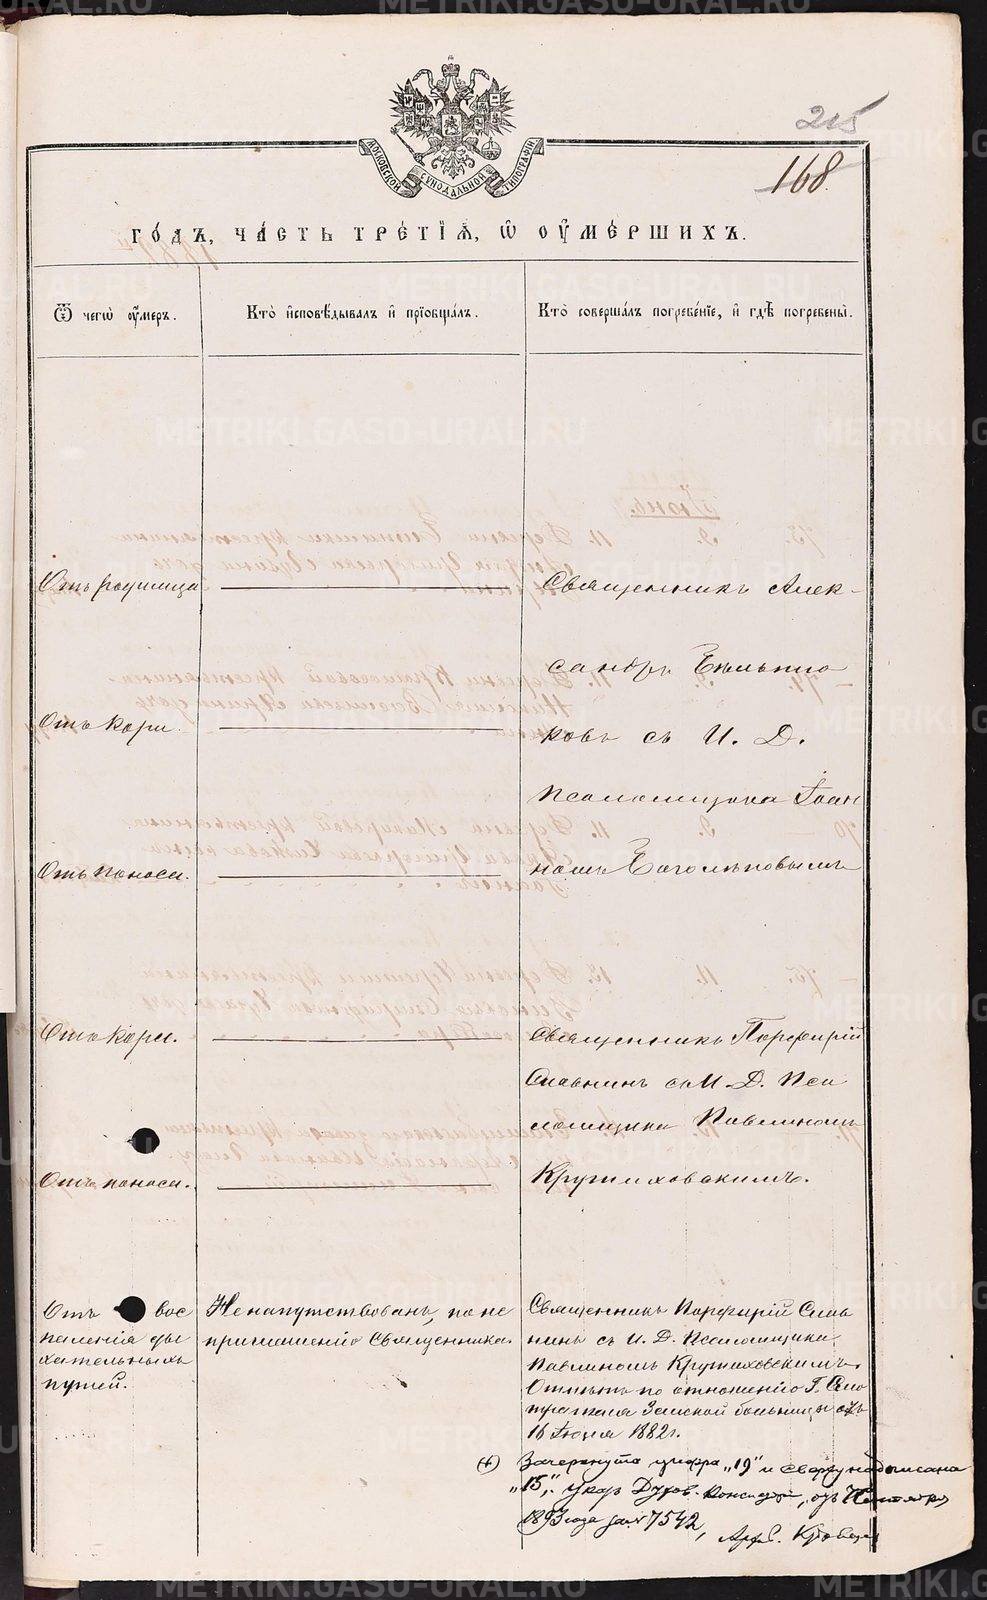 METRIKI.GASO-URAL.RU
215
168.
МОСКОВСКОЙ СѴНОДАЛЬНОЙ ТИПОГРАФІИ
ГО́ДЪ, ЧА́СТЬ ТРЕ́ТІѦ, Ѡ ОУ҆МЕ́РШИХЪ.
Ѿ чегѡ̀ оу҆́меръ.
Кто̀ и҆сповѣ́дывалъ и҆ прїобща́лъ.
Кто̀ соверша́лъ погребе́нїе, и҆ гдѣ̀ погребены̀.
Отъ родимца
Священникъ Алек-
сандръ
ковъ съ И. Д.
Отъ кори.
Псаломщика Іоан
номъ Боголѣповымъ
Отъ поноса.
Отъ кори.
Священникъ Порфирій
Славнинъ съ И. Д. Пса
ломщика Павлиномъ
Крутиховскимъ.
Отъ поноса.
Отъ вос
паленія ды
хательныхъ
путей.
Не напутствованъ, по не
приглашенію Священника.
Священникъ Порфирій Слав
нинъ съ И. Д. Псаломщика
Павлиномъ Крутиховскимъ.
Отпѣтъ по отношенію Г. Смо
трителя Земской больницы отъ
16 Іюня 1882 г.
(+) Зачеркнута цифра "19" и сверху надписана
"15", указ Духов. Консисторіи, отъ
1893 года за № 7542,